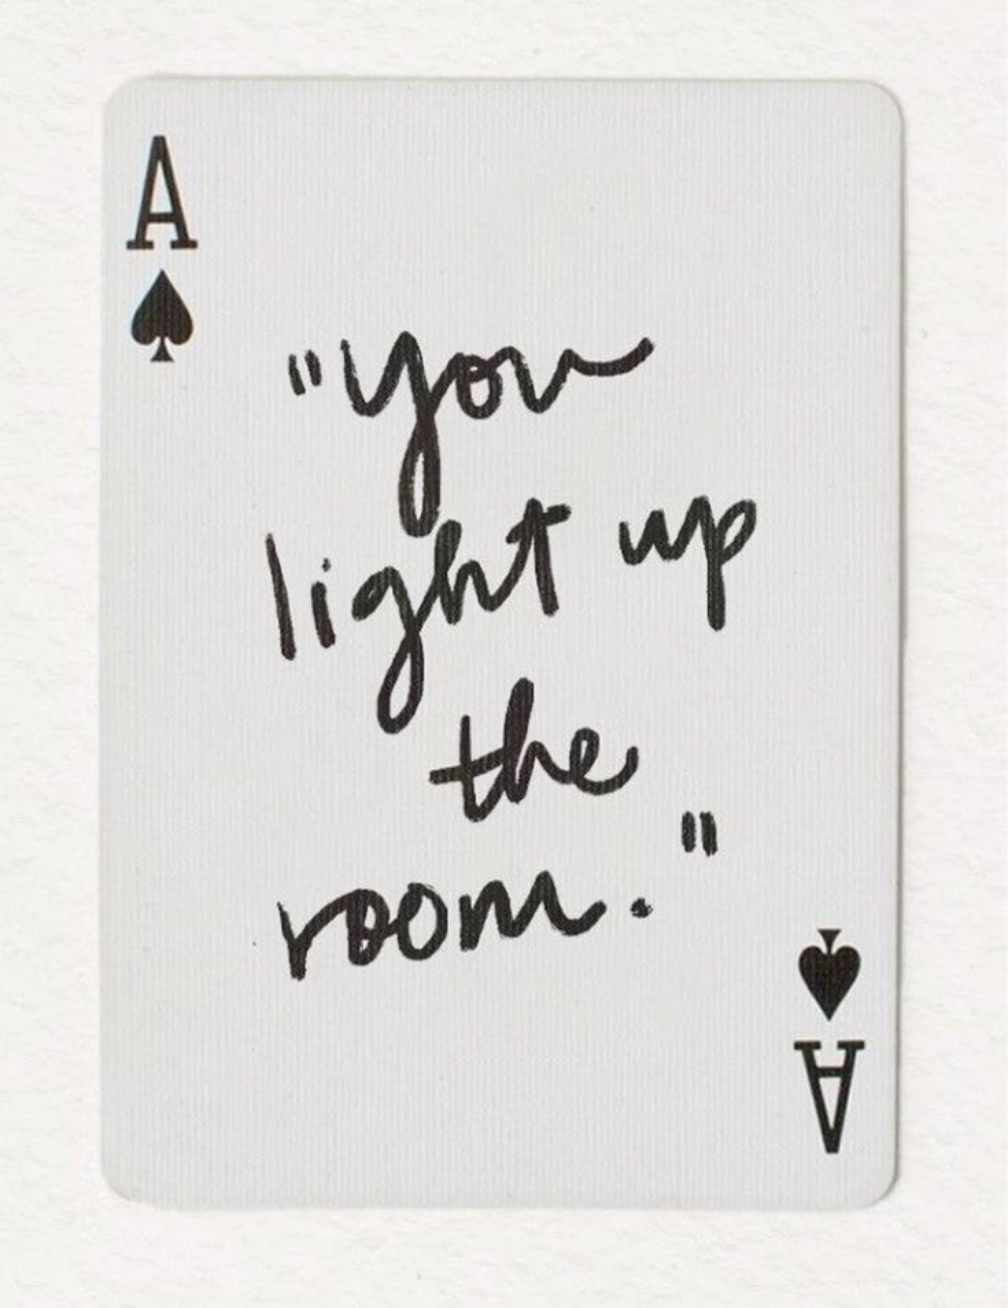 A
"you
light up
the
room."
A